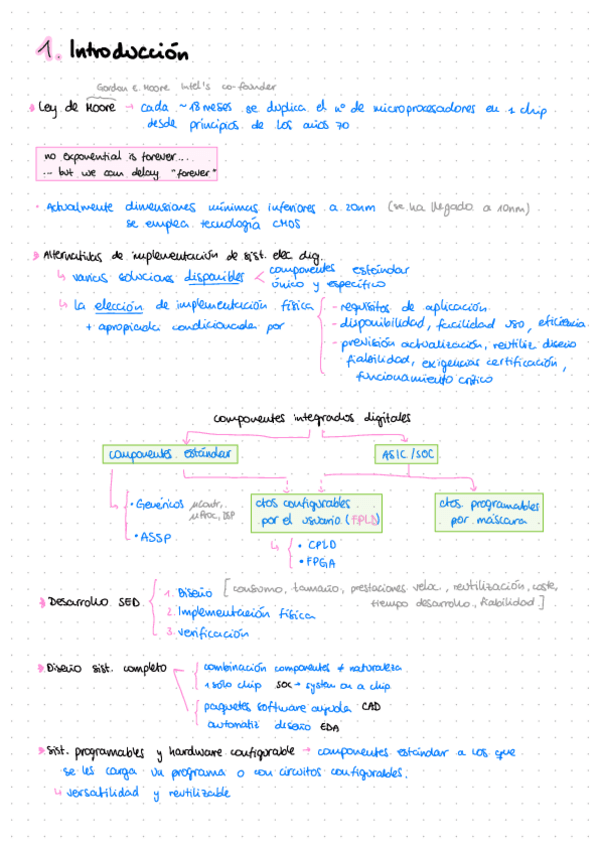 1. Introducción
Gordon E. Moore Intel's co-founder
Ley de Moore → cada ~18 meses se duplica el nº de microprocesadores en 1 chip
desde principios de los años 70
no exponential is forever....
... but we can delay "forever"
Actualmente dimensiones mínimas inferiores a 20nm (se ha llegado a 10nm)
se emplea tecnología CMOS
Alternativas de implementación de sist. elec. dig.
↳ varias soluciones disponibles < componentes estándar
único y específico
↳ la elección de implementación física
+ apropiada condicionada por
- requisitos de aplicación
- disponibilidad, facilidad uso, eficiencia
- previsión actualización, reutiliz diseño
fiabilidad, exigencias certificación,
funcionamiento crítico
componentes integrados digitales
componentes estándar
ASIC/SOC
• Genéricos μcontr.,
μProc, DSP
• ASSP
ctos configurables
por el usuario (FPLD)
↳ • CPLD
• FPGA
ctos. programables
por máscara
Desarrollo SED
1. Diseño [consumo, tamaño, prestaciones veloc., reutilización, coste,
tiempo desarrollo, fiabilidad]
2. Implementación física
3. verificación
Diseño sist. completo
combinación componentes ≠ naturaleza
1 solo chip SOC → system on a chip
paquetes software ayuda CAD
automatiz diseño EDA
Sist. programables y hardware configurable → componentes estándar a los que
se les carga un programa o con circuitos configurables.
↳ versatilidad y reutilizable